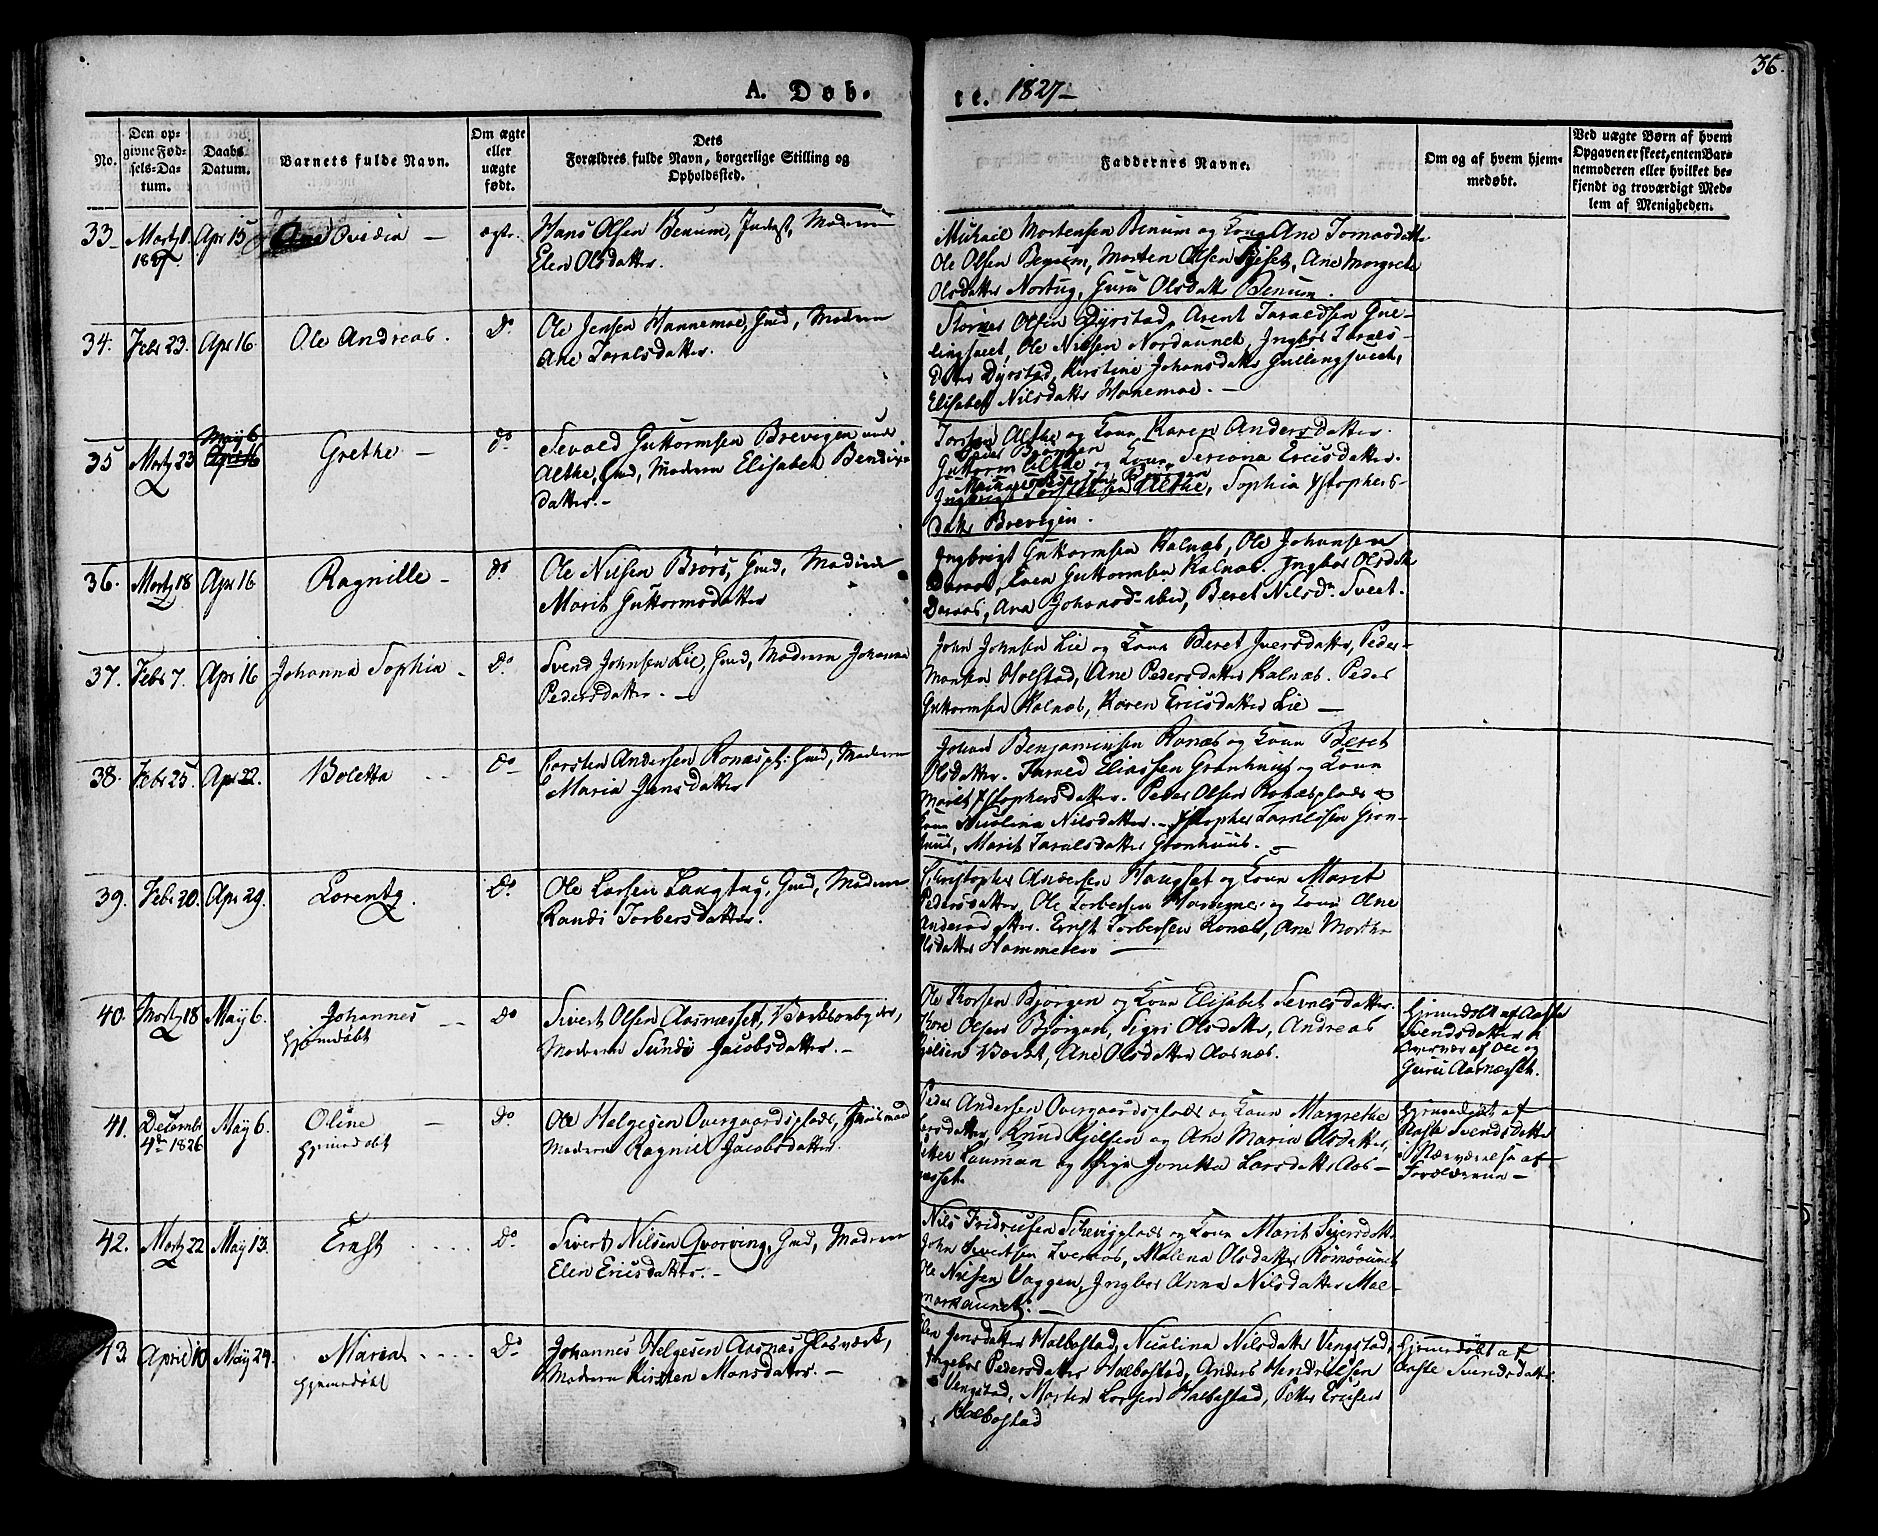 36.
A. Døb-
te. 1827-
No.
Den op-
givne Fød-
sels-Da-
tum.
Daabs
Datum.
Barnets fulde Navn.
Om ægte
eller
uægte
født.
Dets
Forældres fulde Navn, borgerlige Stilling og
Opholdssted.
Faddernes Navne.
Om og af hvem hjem-
medøbt.
Ved uægte Børn af hvem
Opgaven er skeet, enten Bar-
nemoderen eller hvilket be-
kjendt og troværdigt Med-
lem af Menigheden.
33. Martz 1. Apr 15 Ovidia - ægte.
1827.
Hans Olsen Benum, Moderen
Elen Olsdatter.
Michael Mortensen Benum og Kone Ane
Ole Olsen Benum, Morten Olsen Ane Margrete
Olsdatter Nortug, Guru Olsdatter Benum.
34. Febr 23. Apr 16. Ole Andreas. Do
Ole Jensen Hannemoe, Gmd, Moderen
Ane Taralsdatter.
Olsen Dyrstad, Arent Taraldsen Gue-
lingsveet, Ole Nilsen Nordaunet, Ingbor Tarals-
Datter Dyrstad, Kirstine Johansdatter Gullingsveet,
Elisabet Nilsdatter Hanemoe. -
35 Martz 23 May 6. April 16 Grethe - Do
Sevald Guttormsen Brevigen
Aelthe, Gmd, Moderen Elisabeth
datter. -
og Kone Karen Andersdatter.
Guttorm og Kone Ericsdatter.
Sophia Xstophers-
datter Brevigen.
36. Martz 18 Apr 16 Ragnille - Do
Ole Nilsen Brørs, Gmd, Moderen
Marit Guttormsdatter
Ingbrigt Guttormsen Kalnæs, Ole Johansen
Daraas, Guttormsen Kalnæs. Ingbor Olsdatter
Daraas, Ane Johansd. ibid, Beret Nilsdr. Sveet.
37. Febr 7. Apr 16 Johanna Sophia - Do
Svend Johnsen Lie, Gmd, Moderen Johanna
Pedersdatter. -
John Johnsen Lie og Kone Beret Iversdatter, Peder
Monsen Holstad, Ane Pedersdatter Kalnæs. Peder
Guttormsen Kalnæs, Karen Ericsdatter Lie -
38. Febr 25. Apr 22. Boletta Do
Carsten Andersen Ronæspl: Gmd, Moderen
Maria Jensdatter
Johan Benjaminsen Ronæs og Kone Beret
Olsdatter. Eliassen Grønhuus og Kone
Marit Xstophersdatter. Peder Olsen Ronæsplads og
Kone Nicolina Nilsdatter. - Xstopher Taraldsen Grøn-
huus, Marit Taralsdatter Grønhuus. -
39. Febr 20. Apr 29. Lorentz. Do
Ole Larsen Langtug, Gmd, Moderen
Randi Torbersdatter.
Christopher Andersen Haugset og Kone Marit
Pedersdatter, Ole Torbersen og Kone Ane
Andersdatter. Ernst Torbersen Ronæs, Ane Marthe
Olsdatter Hammeren -
40. Martz 18 May 6. Johannes Do
Hjemdøbt
Sivert Olsen Aasnæsset,
Moderen Jacobsdatter. -
Ole Thorsen Bjørgen og Kone Elisabet
Thore Olsen Bjørgen, Sigri Olsdatter, Andreas
Ane Olsdatter Aasnæs.
Hjemmedøbt af Aaste
Svendsdatter i
Overvær af Ole og
Guru Aasnæsset.
41. Decembr May 6. Oline - Do
4de 1826 Hjemdøbt
Ole Helgesen Overgaardsplads, Huusmand
Moderen Ragnil Jacobsdatter.
Peder Andersen Overgaardsplads og Kone Margrethe
Larsdatter, Knud og Ane Maria Olsdatter,
Lauman og Jonetta Larsdatter Aas-
næsset.
Hjemmedøbt af
Aaste Svendsdatter
i Nærværelse af
Forældrene -
42. Martz 22 May 13. Ernst Do
Sivert Nilsen Qvorving, Gmd, Moderen
Elen Ericsdatter. -
Nils Fridricsen og Kone Marit
John Sivertsen Malena Olsdatter
Ole Nilsen Vaggen, Ingbor Anna Nilsdatter Mal-
-
43. April 10 May 24. Maria Do
Hjemmedøbt
Johannes Helgesen Aasnæs Glasværk,
Moderen Kirsten Monsdatter. -
Elen Jensdatter Halbostad, Nicolina Nilsdatter Vengstad,
Ingebor Pedersdatter Halbostad, Anders Hendricsen
Vengstad, Morten Larsen Halbostad, Petter Ericsen
Halbostad
Hjemmedøbt af
Aaste Svendsdatter.